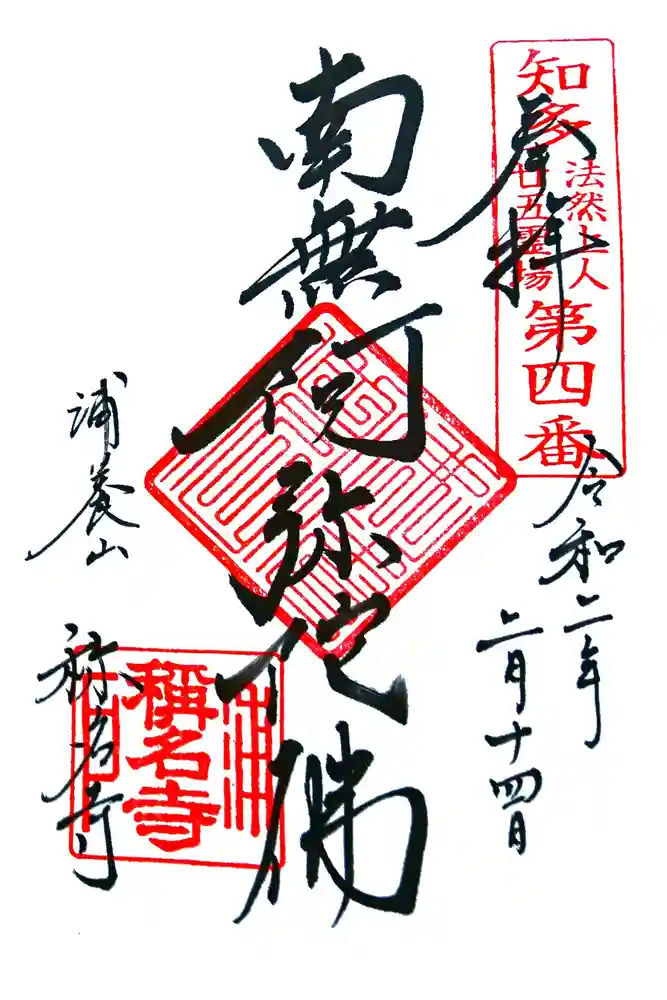 知多
法然上人
廿五霊場
第四番
奉拝
令和二年
二月十四日
南無阿弥陀佛
浦養山
称名寺
稱名寺